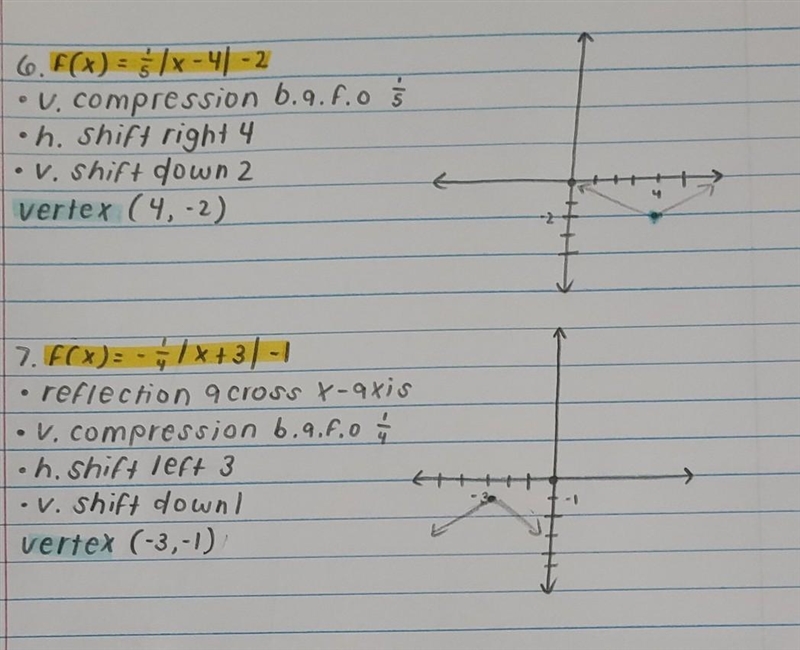 6. f(x) = 1/5 |x - 4| - 2
• v. compression b.a.f.o 1/5
• h. shift right 4
• v. shift down 2
vertex (4, -2)
4
-2
7. f(x) = - 1/4 |x + 3| - 1
• reflection across x-axis
• v. compression b.a.f.o 1/4
• h. shift left 3
• v. shift down 1
vertex (-3, -1)
-3
-1